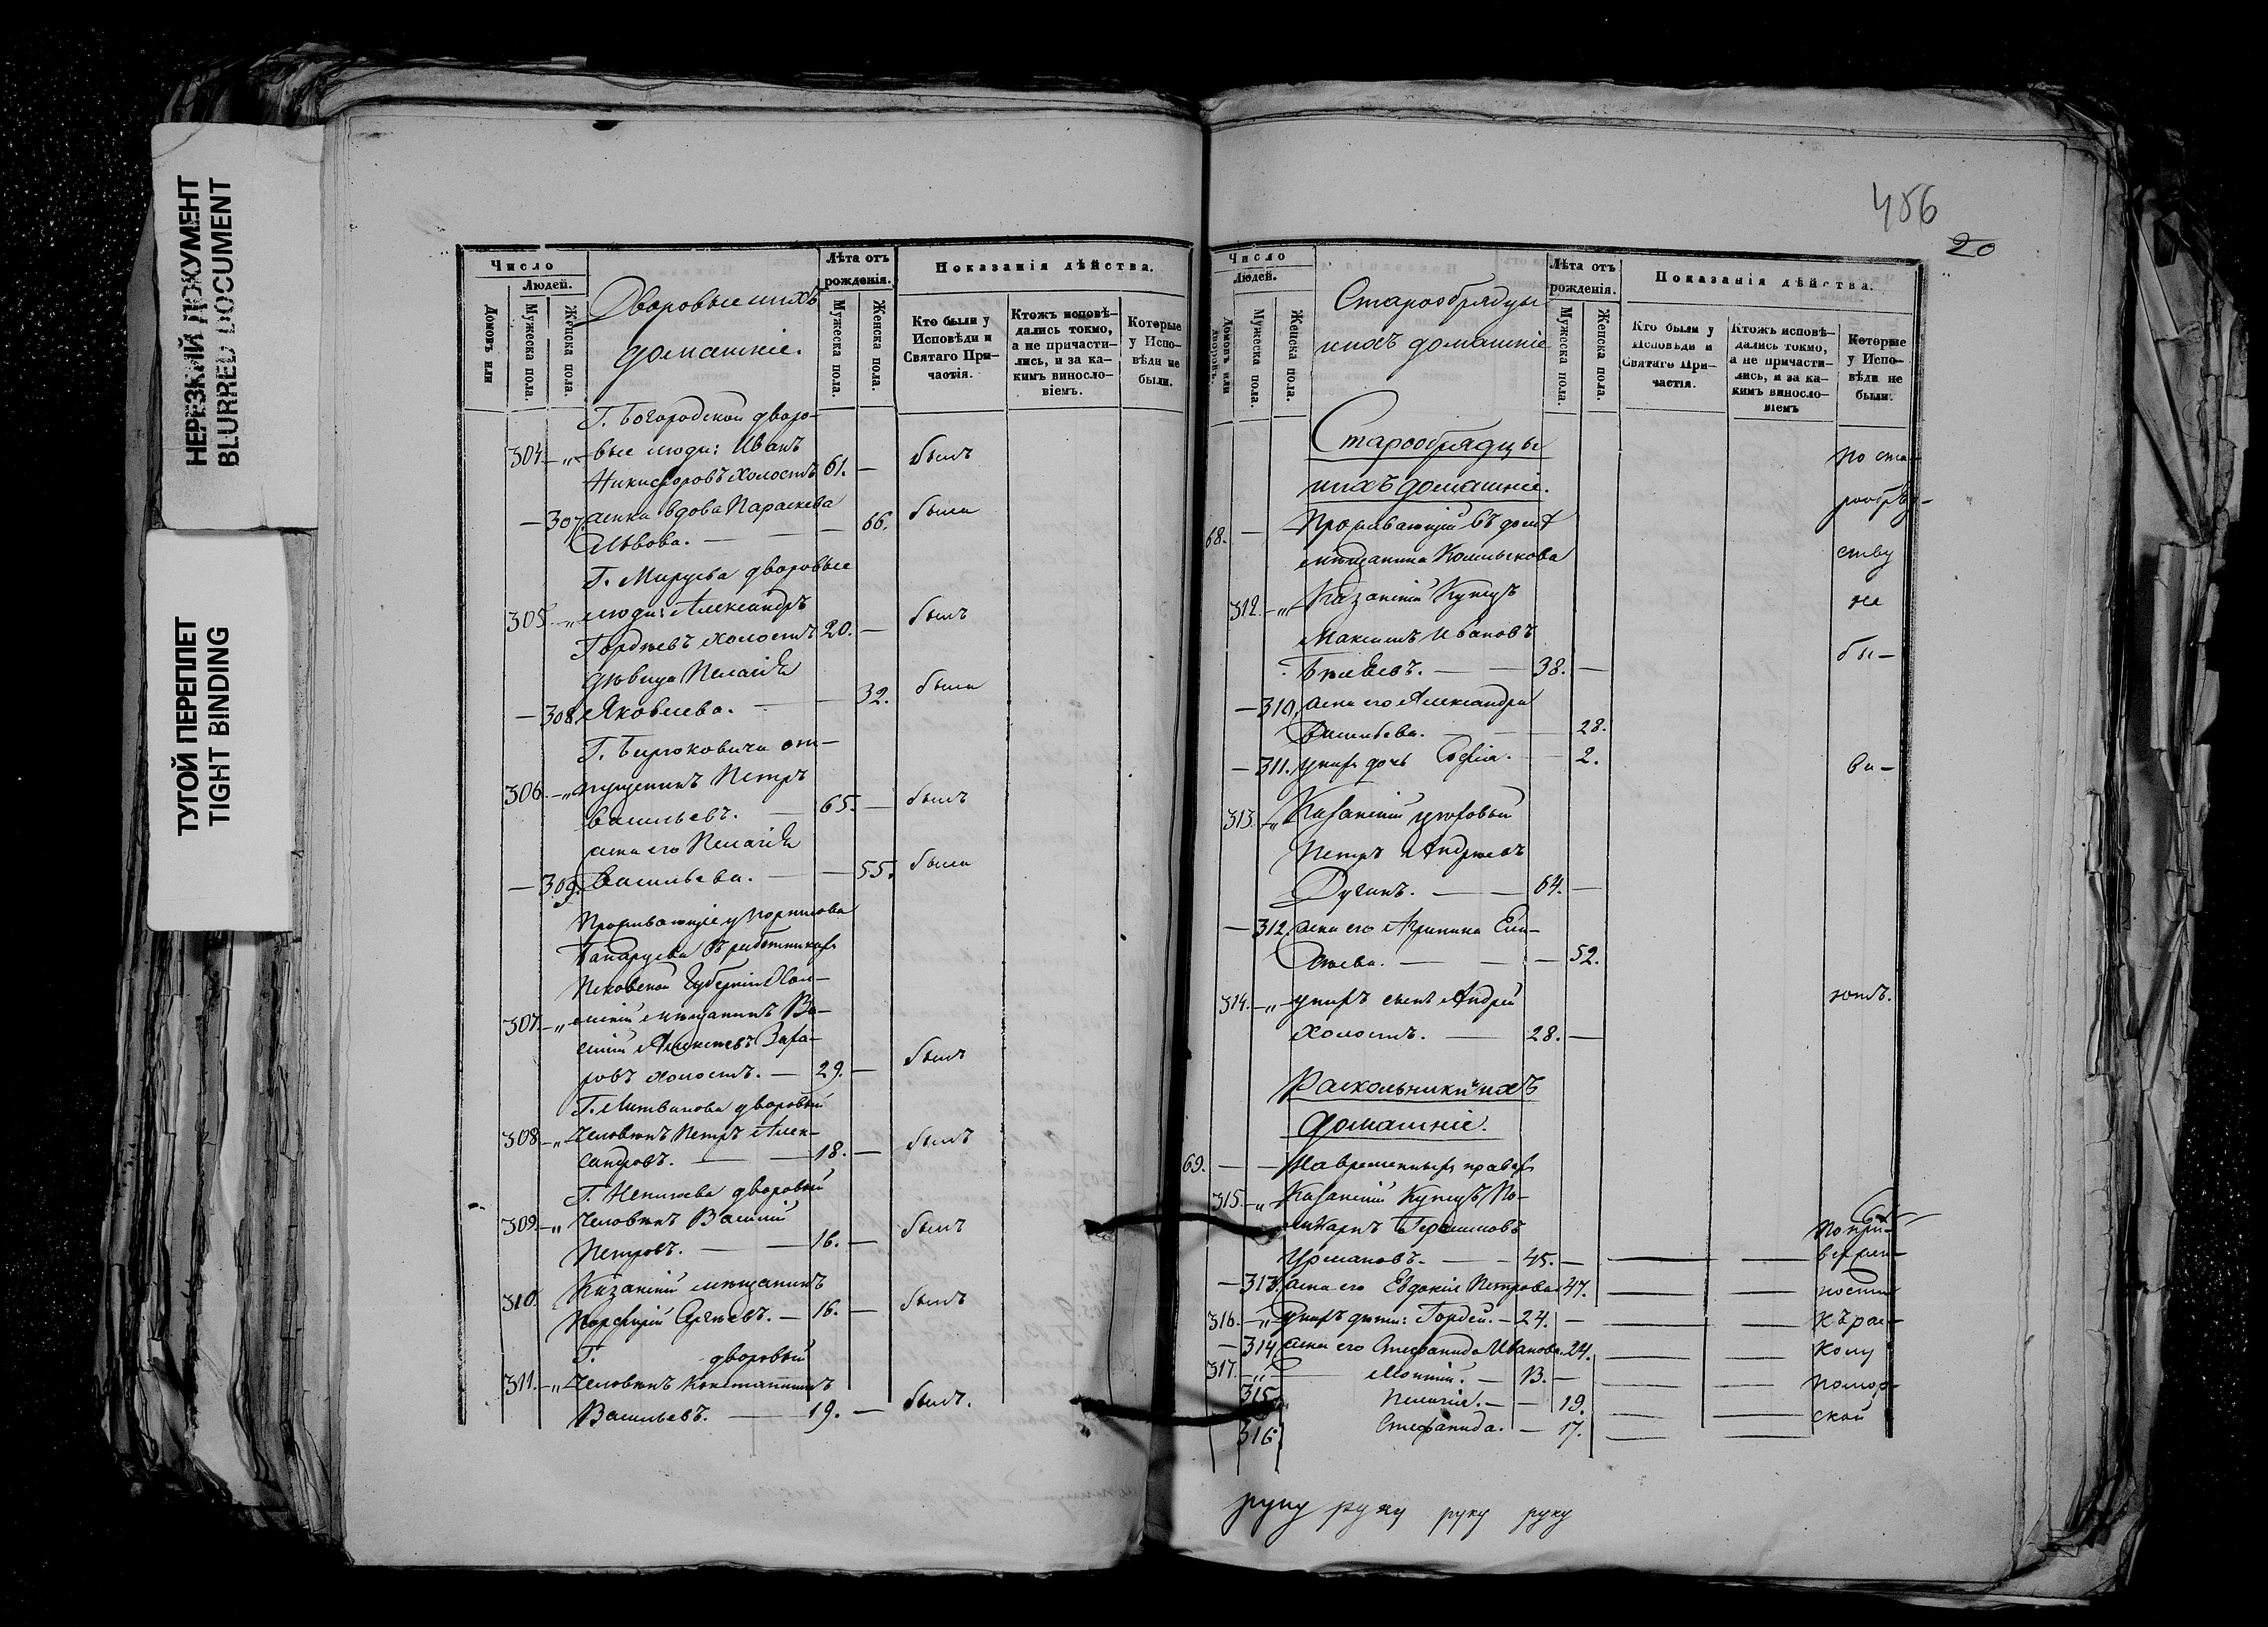 НЕРЕЗКИЙ ДОКУМЕНТ
BLURRED DOCUMENT
ТУГОЙ ПЕРЕПЛЕТ
TIGHT BINDING
Число
Людей.
Домовъ или
Мужеска пола.
Женска пола.
Дворовые и ихъ
домашніе.
Лѣта отъ
рожденія.
Мужеска пола.
Женска пола.
Показанія дѣйства.
Кто были у
Исповѣди и
Святаго При-
частія.
Ктожъ исповѣ-
дались токмо,
а не причасти-
лись, и за ка-
кимъ виносло-
віемъ.
Которые
у Испо-
вѣди не
были.
Г. Богородской дворо-
304. — „ — вые люди: Иванъ
Никифоровъ холостъ 61. — былъ
— 307. жена вдова Параскева
Львова. — — — 66. была
Г. дворовые
305. — „ люди: Александръ
Гордѣевъ холостъ 20. — былъ
дѣвица Пелагія
— 308. Яковлева. — — 32. была
Г. Бирюковича от-
306. — „ пущенникъ Петръ
Васильевъ. — 65. — былъ
жена его Пелагія
— 309. Васильева. — — 55. была
Проживающіе у
въ работникахъ
Псковской Губерніи Хол-
307. — „ мскій мѣщанинъ Ва-
силій Алексѣевъ Заха-
ровъ холостъ. — 29. — былъ
Г. Литвинова дворовый
308. — „ человѣкъ Петръ Алек-
сандровъ. — — 18. — былъ
Г. дворовый
309. — „ человѣкъ Василій
Петровъ. — — 16. — былъ
Казанскій мѣщанинъ
310. Порфирій Сергѣевъ. — 16. — былъ
Г. дворовый
311. — „ человѣкъ Константинъ
Васильевъ. — 19. — былъ.
456
20
Число
Людей.
Домовъ или
дворовъ.
Мужеска пола.
Женска пола.
Старообрядцы
и ихъ домашніе
Лѣта отъ
рожденія.
Мужеска пола.
Женска пола.
Показанія дѣйства.
Кто были у
Исповѣди и
Святаго При-
частія.
Ктожъ исповѣ-
дались токмо,
а не причасти-
лись, и за ка-
кимъ виносло-
віемъ
Которые
у Испо-
вѣди не
были.
Старообрядцы
и ихъ домашніе.
по ста-
рообряд-
68. — Проживающій въ домѣ
мѣщанина Комлыкова
ству
312. — „ Казанскій Купецъ
не
Максимъ Ивановъ
бы-
— — 38. —
— 310. жена его Александра
Васильева. — — 28.
— 311. у нихъ дочь Софія. — 2.
ва-
313. — „ Казанскій цеховой
Петръ Андреевъ
— — 64. —
— 312. жена его Агрипина Ели-
сѣева. — — — 52.
314. — „ у нихъ сынъ Андрей
ютъ.
холостъ. — 28. —
Раскольники и ихъ
домашніе.
69. — — На временныхъ правахъ
315. — „ Казанскій Купецъ По-
ликарпъ Герасимовъ
Урмановъ. — — 45. — — —
По при-
вержен-
— 313. жена его Евдокія Петрова 47. — —
ности
316. — „ у нихъ дѣти: Гордей. — 24. — — —
къ рас-
— 314. жена его Стефанида Иванова. 24. — —
колу
317. — „ — — 13. — — —
помор-
315. Пелагія. — — 19. — —
ской
316. Стефанида. — 17. — —
руку руку руку руку